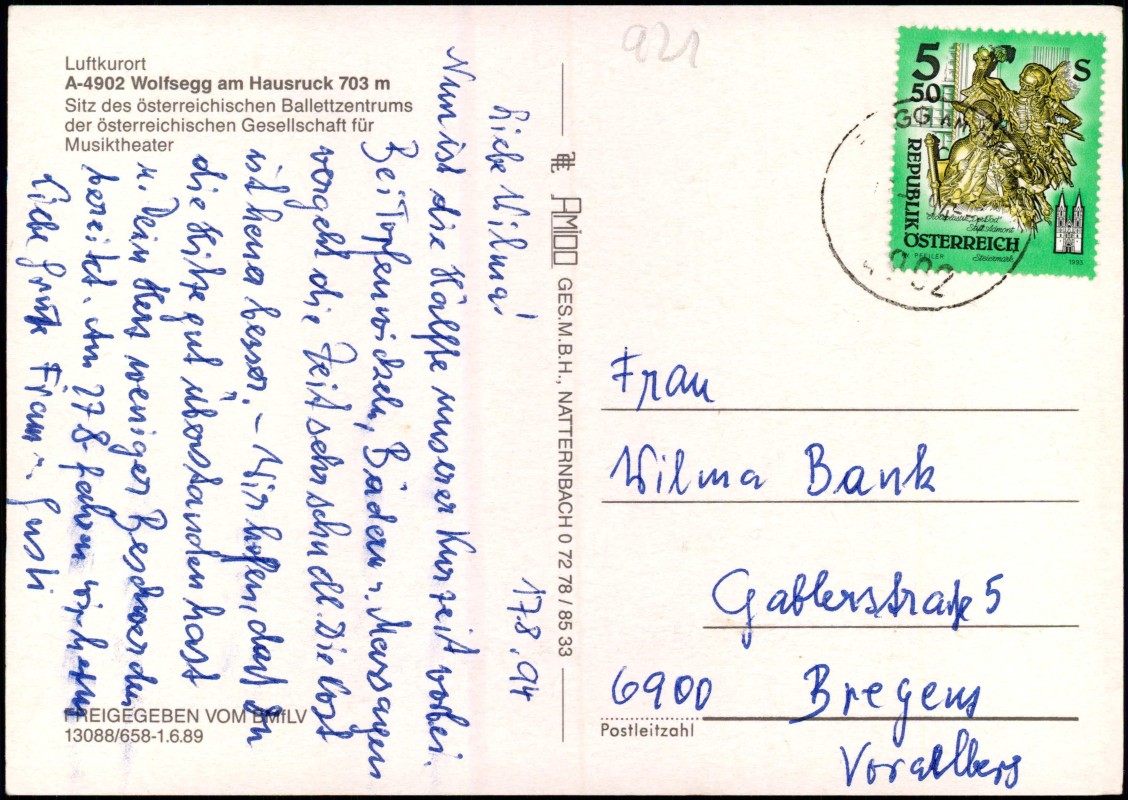 Luftkurort
A-4902 Wolfsegg am Hausruck 703 m
Sitz des österreichischen Ballettzentrums
der österreichischen Gesellschaft für
Musiktheater
17.8.94
Liebe Wilma!
Nun ist die Hälfte unserer Kurzeit vorbei.
Bei Topfenwickeln, Bädern u. Massagen
vergeht die Zeit sehr schnell. Die Kost
ist heuer besser. – Wir hoffen, daß Du
die Hitze gut überstanden hast
u. Dein Herz weniger Beschwerden
bereitet. Am 27.8. fahren wir heim
Liebe Grüße Franz u. Gusti
FREIGEGEBEN VOM BMfLV
13088/658-1.6.89
AMIDO GES.M.B.H., NATTERNBACH 0 72 78 / 85 33
921
5 50 S
REPUBLIK
ÖSTERREICH
Stift Admont
Steiermark
PFEILER
1993
GG AM
4902
Frau
Wilma Bank
Gablerstraße 5
6900 Bregenz
Postleitzahl
Vorarlberg